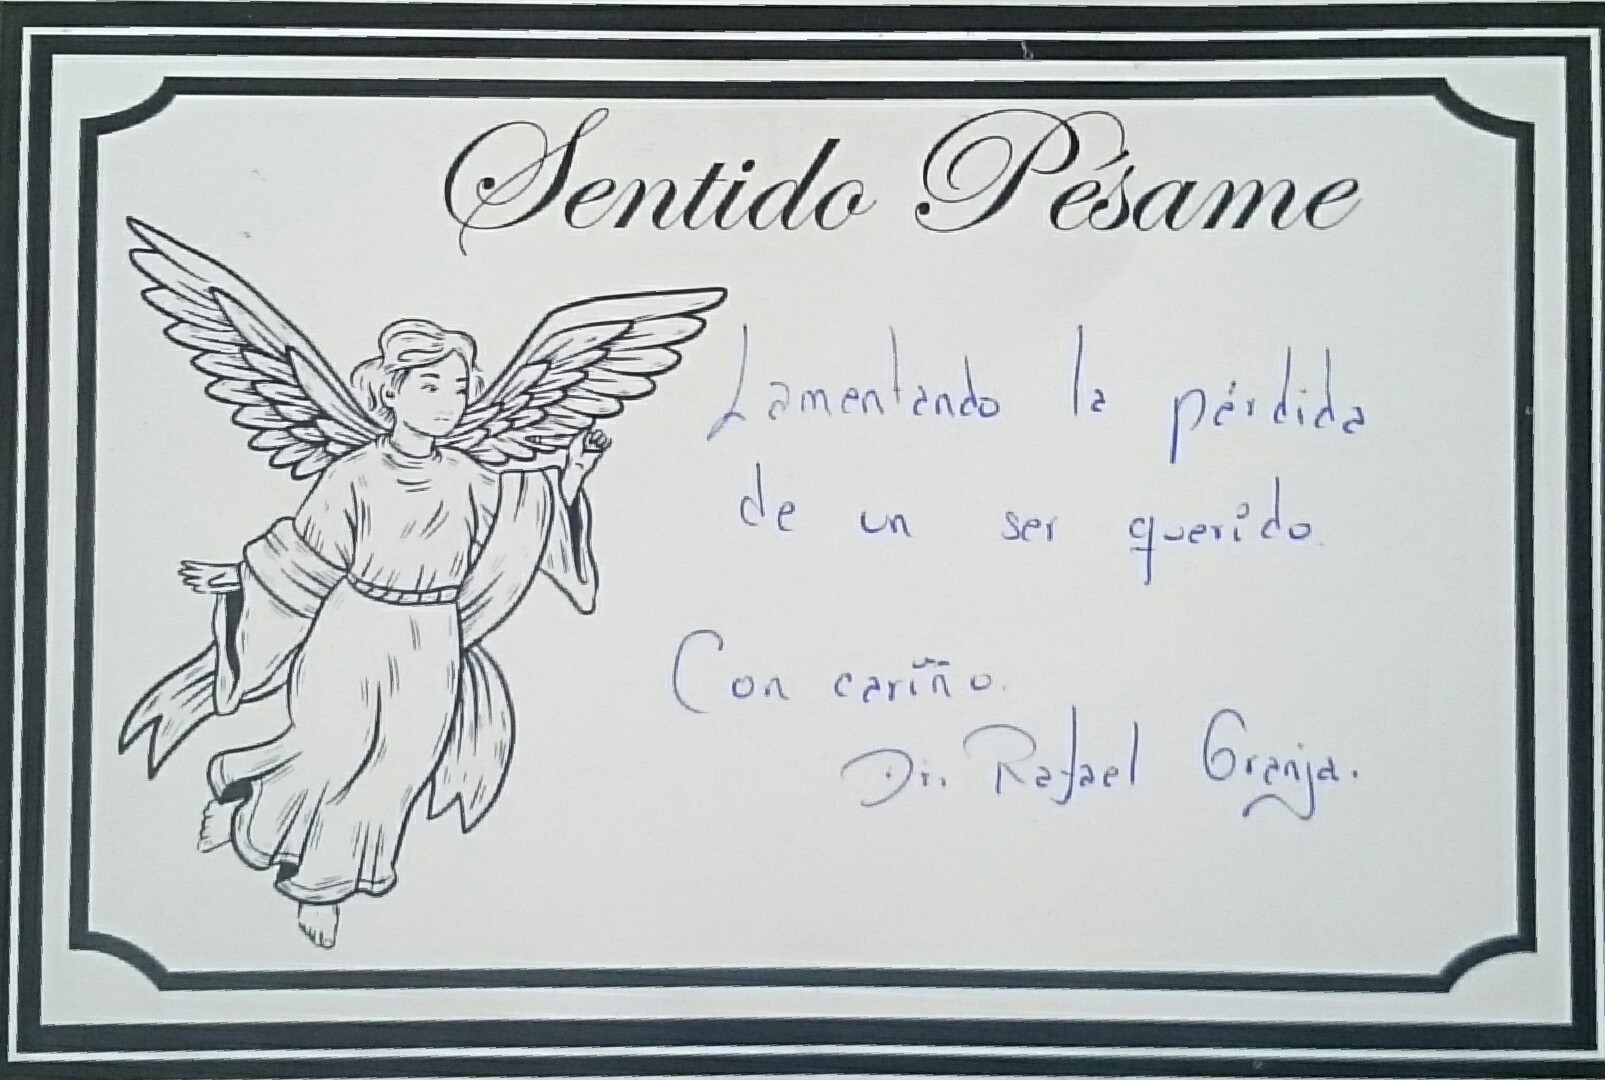 Sentido Pésame
Lamentando la pérdida
de un ser querido.
Con cariño.
Dr. Rafael Granja.